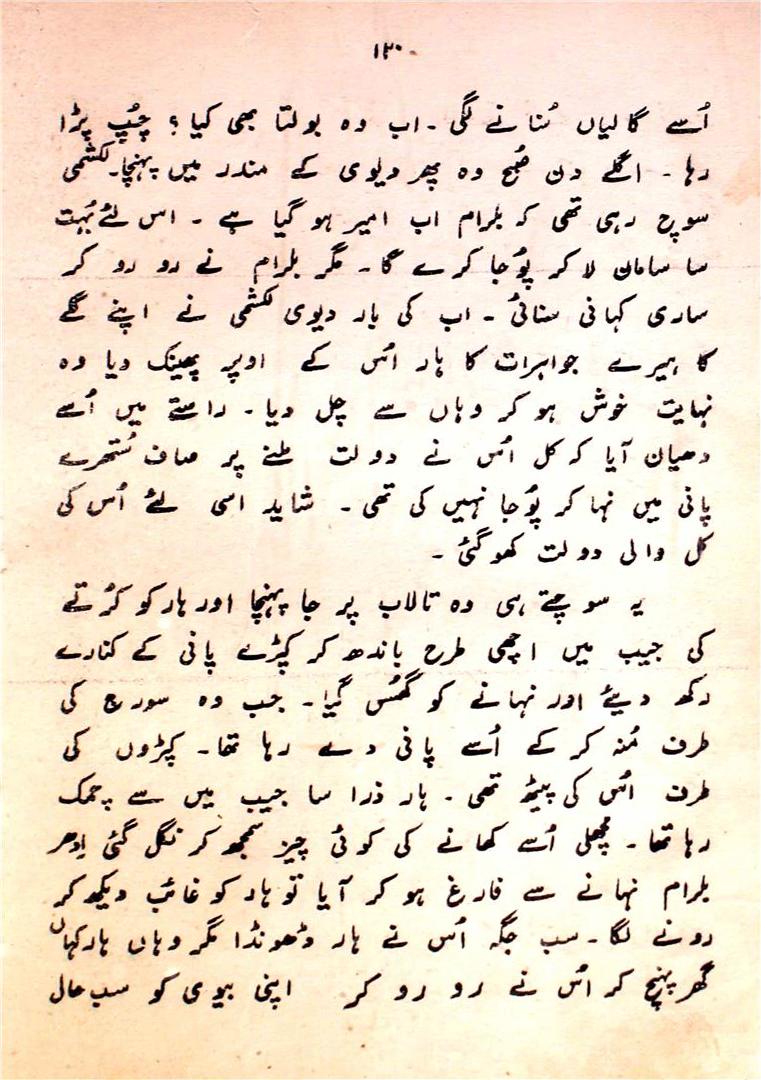 ۱۲۰
اُسے گالیاں سُنانے لگی ۔ اب وہ بولتا بھی کیا ؟ چُپ پڑا
رہا ۔ اگلے دن صُبح وہ پھر دیوی کے مندر میں پہنچا۔ لکشمی
سوچ رہی تھی کہ بلرام اب امیر ہو گیا ہے ۔ اس لئے بُہت
سا سامان لا کر پُوجا کرے گا ۔ مگر بلرام نے رو رو کر
ساری کہانی سنائی ۔ اب کی بار دیوی لکشمی نے اپنے گلے
کا ہیرے جواہرات کا ہار اُس کے اوپر پھینک دیا وہ
نہایت خوش ہو کر وہاں سے چل دیا ۔ راستے میں اُسے
دھیان آیا کہ کل اُس نے دولت ملنے پر صاف سُتھرے
پانی میں نہا کر پُوجا نہیں کی تھی ۔ شاید اسی لئے اُس کی
کل والی دولت کھو گئی ۔
یہ سوچتے ہی وہ تالاب پر جا پہنچا اور ہار کو کُرتے
کی جیب میں اچھی طرح باندھ کر کپڑے پانی کے کنارے
رکھ دیئے اور نہانے کو گھُس گیا ۔ جب وہ سورج کی
طرف مُنہ کر کے اُسے پانی دے رہا تھا ۔ کپڑوں کی
طرف اُس کی پیٹھ تھی ۔ ہار ذرا سا جیب میں سے چمک
رہا تھا ۔ مچھلی اُسے کھانے کی کوئی چیز سمجھ کر نگل گئی اِدھر
بلرام نہانے سے فارغ ہو کر آیا تو ہار کو غائب دیکھ کر
رونے لگا ۔ سب جگہ اُس نے ہار ڈھونڈا مگر وہاں ہار کہاں
گھر پہنچ کر اُس نے رو رو کر اپنی بیوی کو سب حال